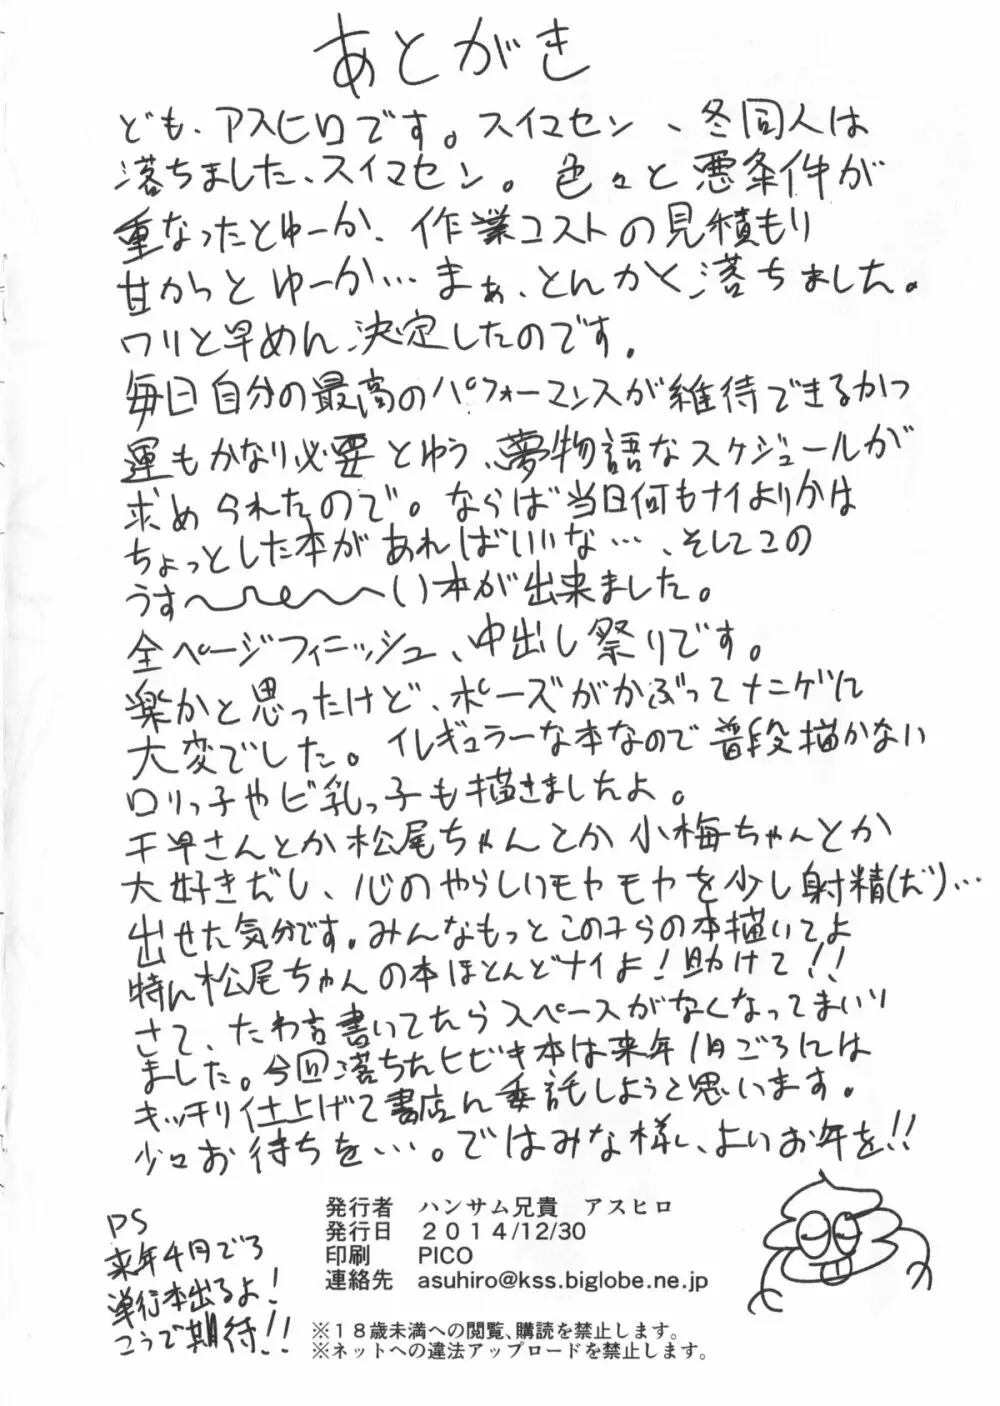 あとがき
ども、アスヒロです。スイマセン、冬同人は
落ちました、スイマセン。色々と悪条件が
重なったとゆーか、作業コストの見積もり
甘かっとゆーか…まぁ、とんかく落ちました。
ワリと早めん決定したのです。
毎日自分の最高のパフォーマンスが維待できるかつ
運もかなり必要とゆう、夢物語なスケジュールが
求められたので。ならば当日何もナイよりかは
ちょっとした本があればいいな…、そしてこの
うす〜〜〜い本が出来ました。
全ページフィニッシュ、中出し祭りです。
楽かと思ったけど、ポーズがかぶってナニゲに
大変でした。イレギュラーな本なので普段描かない
ロリっ子やビ乳っ子も描きましたよ。
千早さんとか松尾ちゃんとか小梅ちゃんとか
大好きだし、心のやらしいモヤモヤを少し射精(だ)…
出せた気分です。みんなもっとこの子らの本描いてよ
特ん松尾ちゃんの本ほとんどナイよ!助けて!!
さて、たわ言書いてたらスペースがなくなってまいり
ました。今回落ちたヒビキ本は来年1月ごろには
キッチリ仕上げて書店ん委託しようと思います。
少々お待ちを…。ではみな様し、よいお年を!!
発行者 ハンサム兄貴 アスヒロ
発行日 2014/12/30
印刷 PICO
連絡先 asuhiro@kss.biglobe.ne.jp
※18歳未満への閲覧、購読を禁止します。
※ネットへの違法アップロードを禁止します。
PS
来年4月ごろ
単行本出るよ!
こうご期待!!